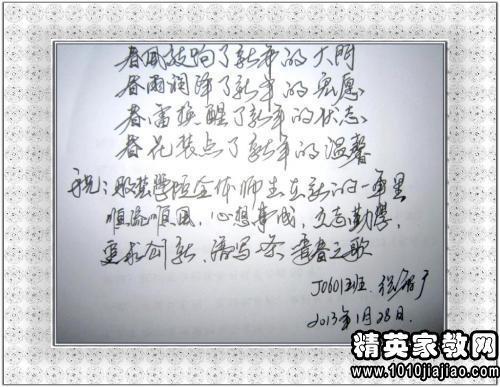 春风敲响了新年的大门
春雨润了新年的愿
春雷换醒了新年的状态
春花装点了新年的温馨
祝:学院全体师生在新的一年里
顺流顺风,心想事成,立志勤学,
更求创新,谱写青春之歌
J0601班
2013年1月28日.
精英家教网
www.1010jiajiao.com